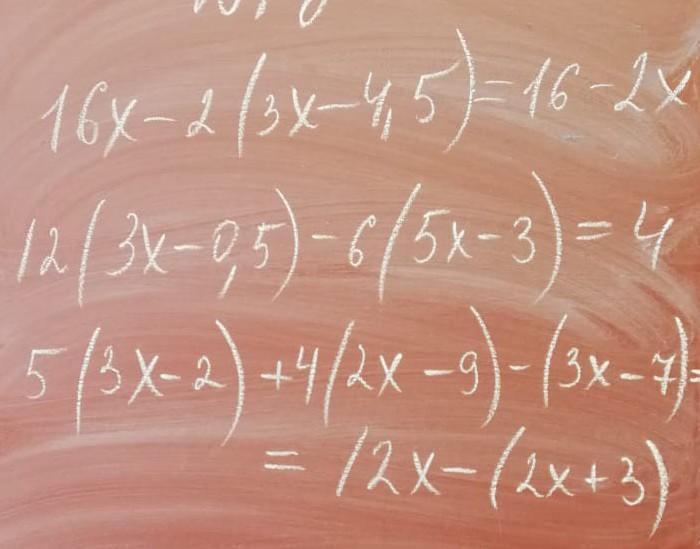 16x-2(3x-4,5)=16-2x
12(3x-0,5)-6(5x-3)=4
5(3x-2)+4(2x-9)-(3x-7)=
=12x-(2x+3)